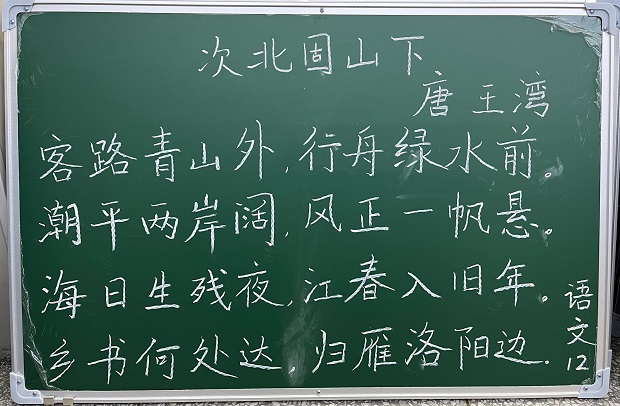 次北固山下
唐 王湾
客路青山外,行舟绿水前。
潮平两岸阔,风正一帆悬。
海日生残夜,江春入旧年。
乡书何处达,归雁洛阳边.
语文12